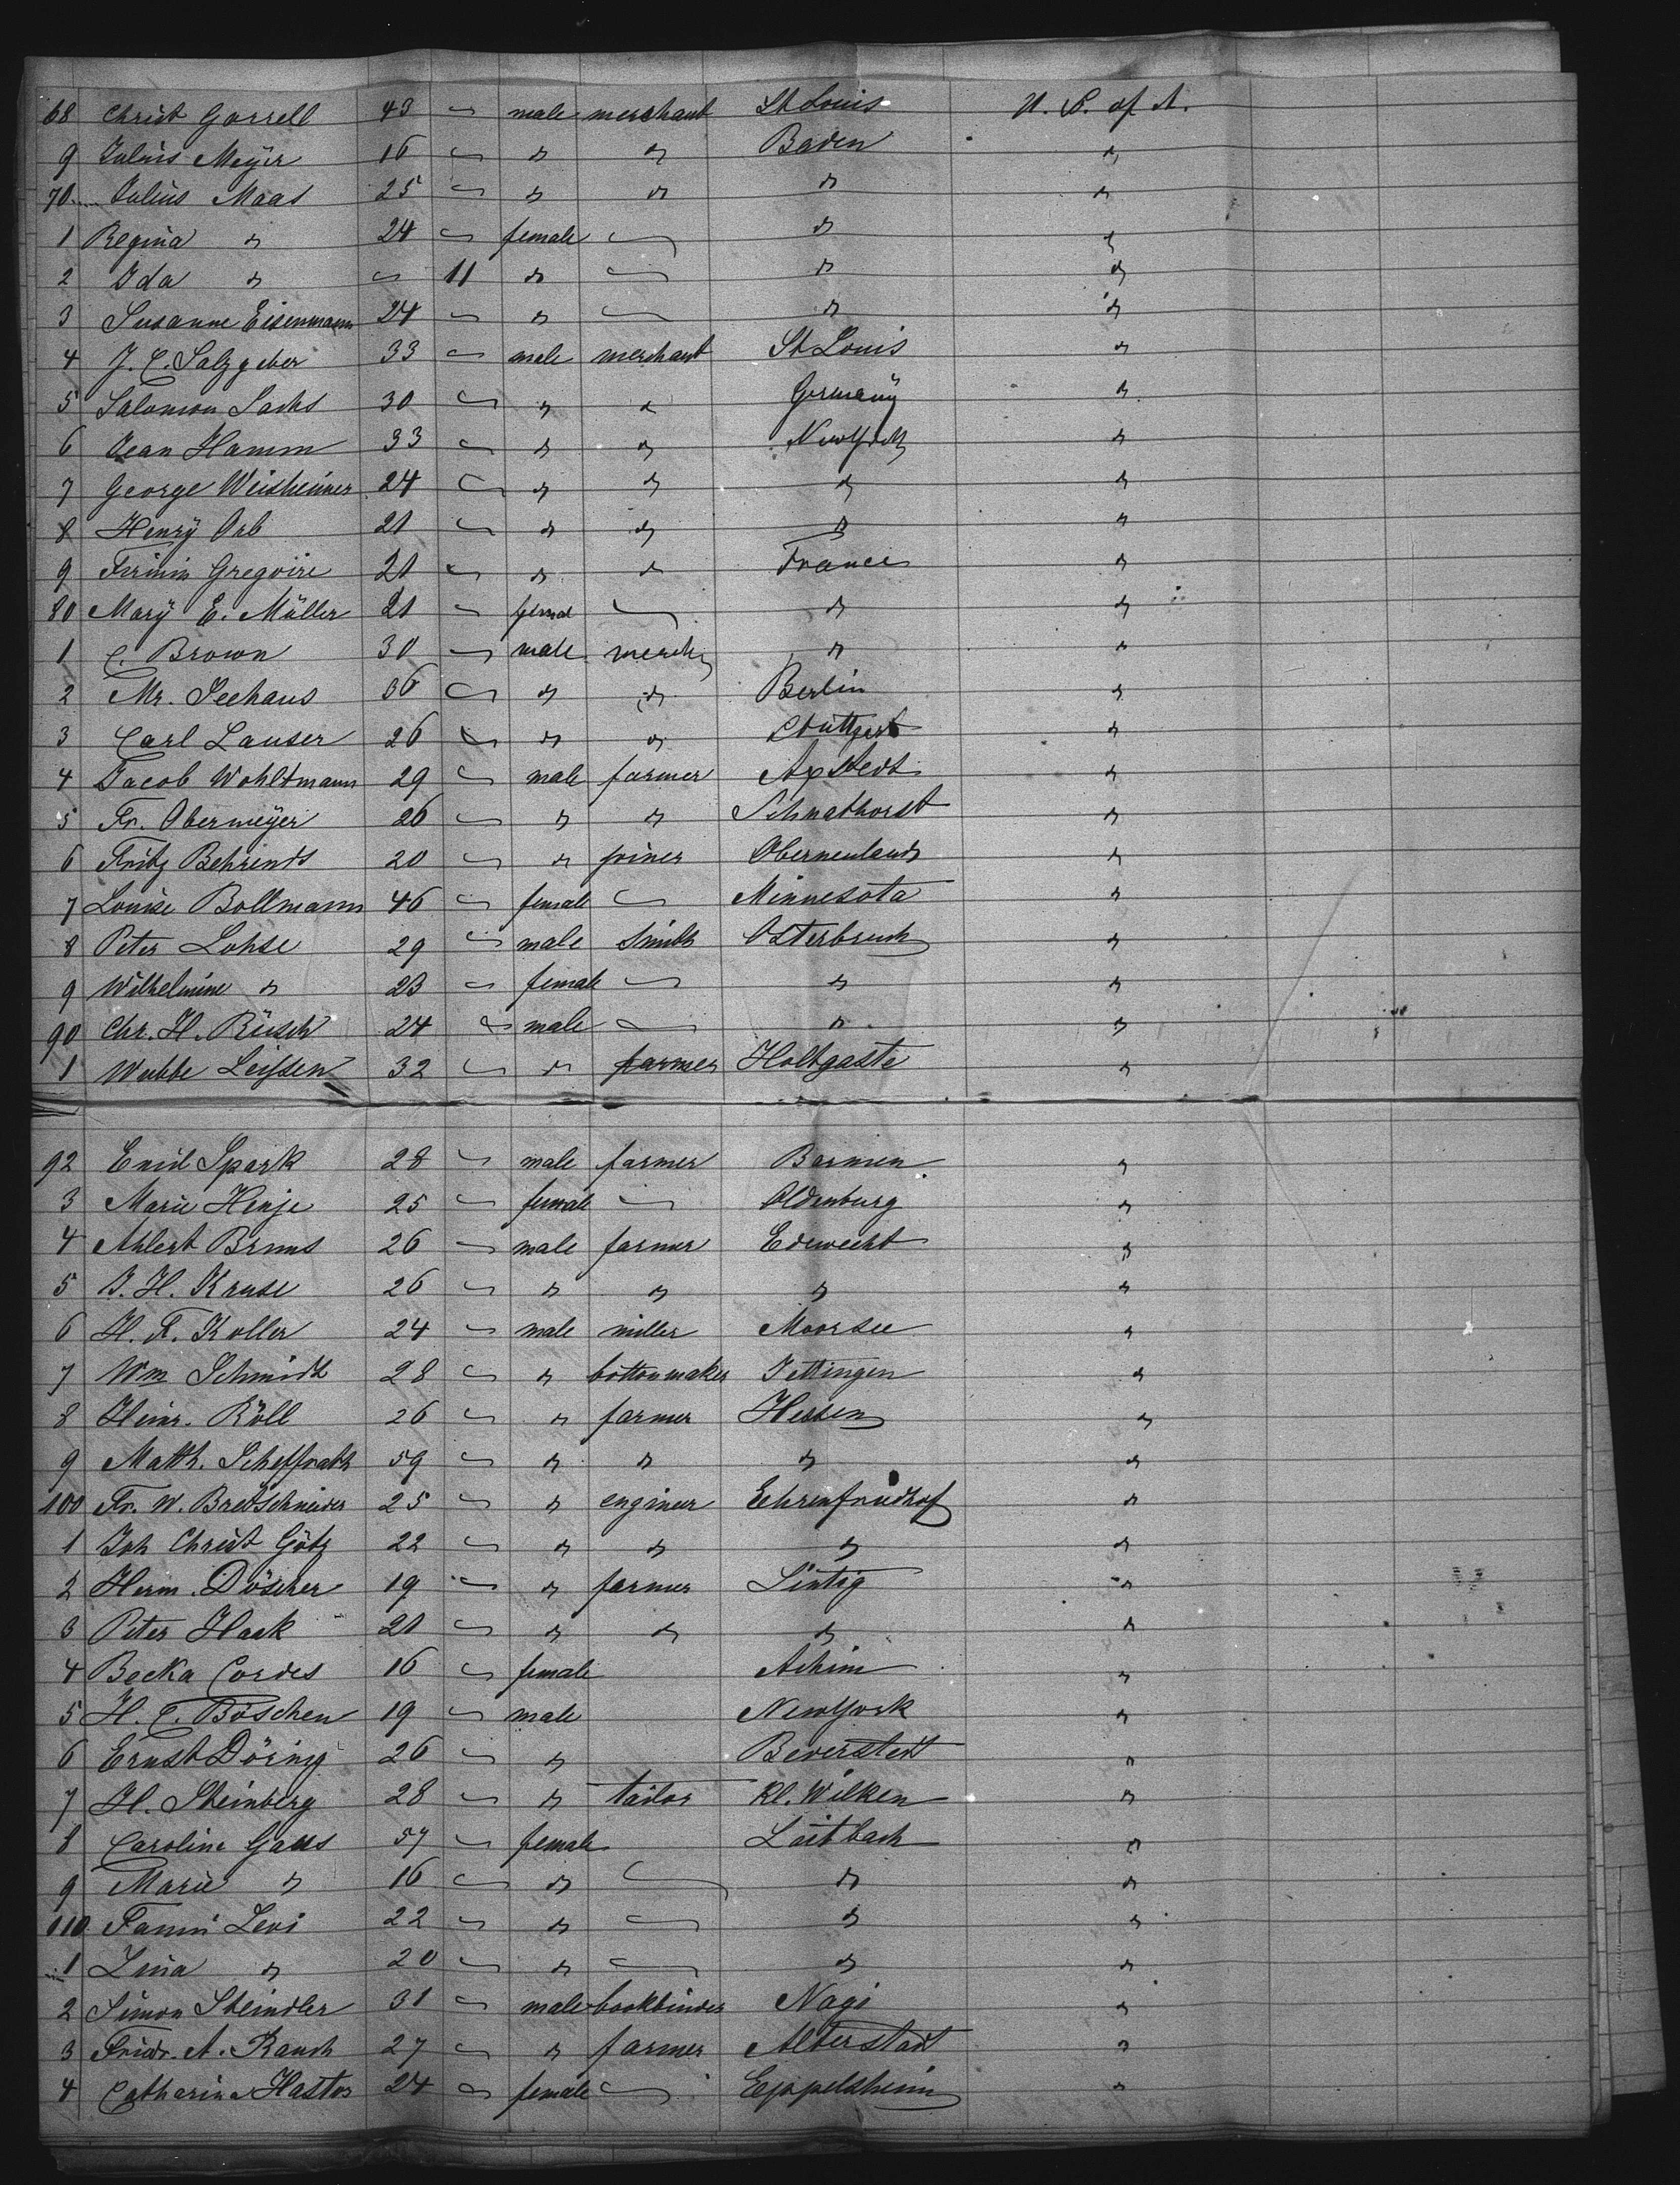 68 Christ Gorrell 43 — male merchant St Louis U. S. of A.
9 Julius Meÿer 16 — " " Baden "
70 Julius Maas 25 — " " " "
1 Regina " 24 — female — " "
2 Ida " — 11 " — " "
3 Susanne Eisenmann 24 — " — " "
4 J. C. Salzgeber 33 — male merchant St Louis "
5 Salomon Sachs 30 — " " Germanÿ "
6 Jean Hamm 33 — " " NewYork "
7 George Weisheimer 24 — " " " "
8 Henrÿ Orb 21 — " " " "
9 Firmin Gregoire 21 — " " France "
80 Marÿ E. Müller 21 — femal — " "
1 C. Brown 30 — male merch " "
2 Mr. Seehaus 36 — " " Berlin "
3 Carl Lauser 26 — " " Stuttgart "
4 Jacob Wohltmann 29 — male farmer Axstedt "
5 Fr. Obermeÿer 26 — " " Schnathorst "
6 Fritz Behrends 20 — " joiner Oberneuland "
7 Louise Bollmann 46 — female — Minnesota "
8 Peter Lohse 29 — male Smith Osterbruch "
9 Wilhelmine " 23 — female — " "
90 Chr. H. Büsch 24 — male — " "
1 Wubbe Leissen 32 — " farmer Holtgaste "
92 Emil Spark 28 — male farmer Barmen "
3 Marie Henje 25 — female — Oldenburg "
4 Ahlert Bruns 26 — male farmer Edewecht "
5 J. H. Kruse 26 — " " " "
6 H. F. Koller 24 — male miller Moorsee "
7 Wm Schmidt 28 — " bottonmaker Jettingen "
8 Heinr. Röll 26 — " farmer Hessen "
9 Matth. Scheffrath 59 — " " " "
100 Fr. W. Bredschneider 25 — " engineer Eehrenfriedhof "
1 Joh Christ Götz 22 — " " " "
2 Herm. Döscher 19 — " farmer Sintig "
3 Peter Haak 21 — " " " "
4 Becka Cordes 16 — female Achim "
5 H. C. Böschen 19 — male NewYork "
6 Ernst Döring 26 — " Beverstedt "
7 H. Steinberg 28 — " tailor Kl. Wilken "
8 Caroline Gaus 57 — female Laitbach "
9 Marie " 16 — " — " "
110 Fanni Levi 22 — " — " "
1 Lina " 20 — " — " "
2 Simon Steindler 31 — male bookbinder Nagi "
3 Friedr. A. Rauch 27 — " farmer Alterstadt "
4 Catharina Hastor 24 — female — Eppelsheim "